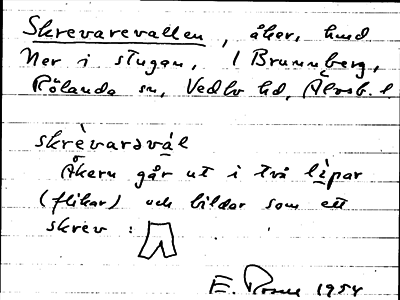 Skrevarevallen, åker, hmd
Ner i stugan, 1 Brunnberg,
Rölanda sn, Vedbo hd, Älvsb. l.
skrèvarəvál
Åkern går ut i två lìpar
(flikar) och bildar som ett
skrev:
E. Rosell 1954